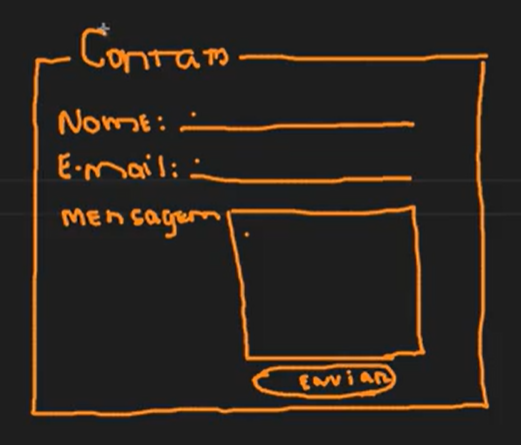 Contato
Nome:
E-mail:
mensagem
Enviar